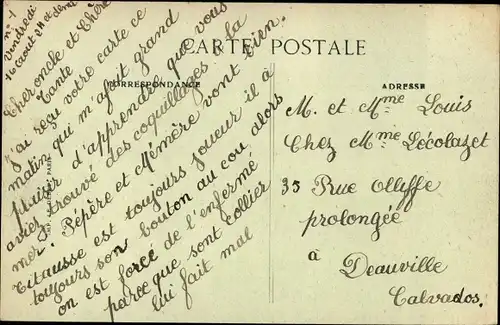 CARTE POSTALE
CORRESPONDANCE
ADRESSE
n° 1
Vendredi
16 Caout 2 H et demi
Cher oncle et Chère
Tante
J'ai reçu votre carte ce
matin qui m'a fait grand
plaisir d'apprendre que vous
avez trouvé des coquillages à la
mer. Pépère et Mémère vont bien.
Titausse est toujours joueur il a
toujours son bouton au cou alors
on est forcé de l'enfermé
parce que sont collier
lui fait mal
M. et Mme Louis
Chez Mme Lécolazet
33 Rue Olliffe
prolongée
à Deauville
Calvados.